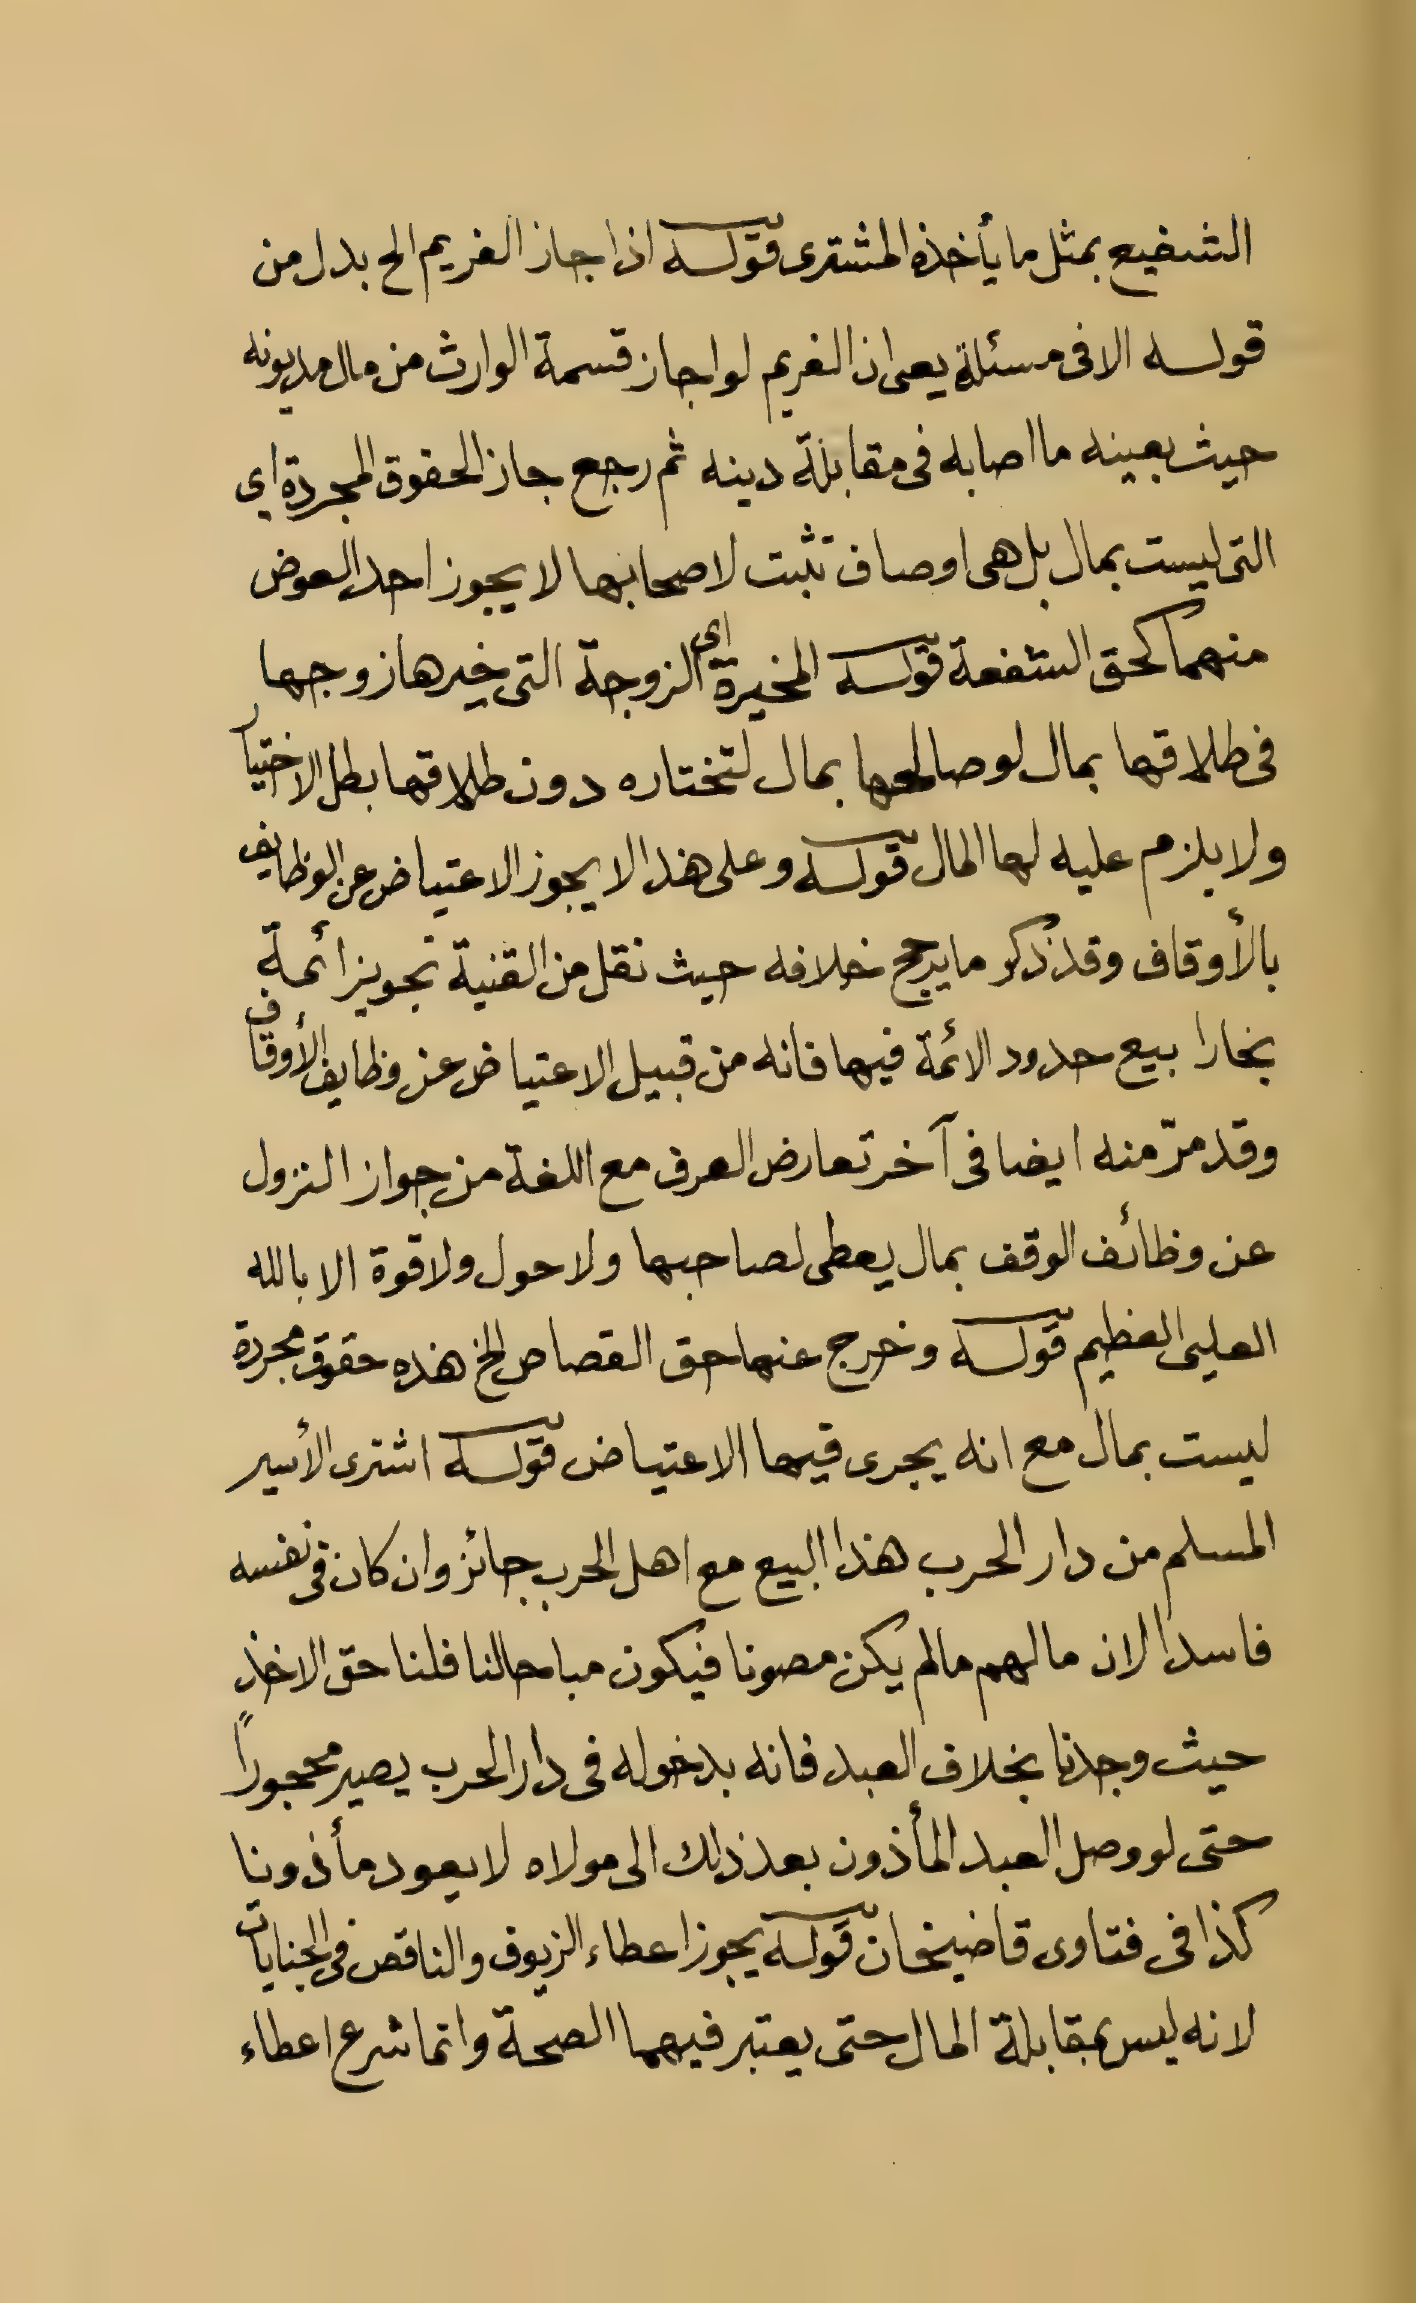 الشفيع بمثل ما يأخذه المشترى قوله اذا جاز الغريم الخ بدل من
قوله الا فى مسئلة يعى ان الغريم لو اجاز قسمة الوارث من مال مديونه
حيث بعينه ما اصابه فى مقابلة دينه ثم رجع جاز الحقوق المجردة اى
التى ليست بمال بل هى اوصاف تثبت لاصحابها لا يجوز احد العوض
منهما كحق الشفعة قوله المخيرة اى الزوجة التى خيرها زوجها
فى طلاقها بمال لو صالحها بمال لتختاره دون طلاقها بطل الاختيار
ولا يلزم عليه لها المال قوله وعلى هذا لا يجوز الاعتياض عن الوظايف
بالأوقاف وقد ذكر ما يرجح خلافه حيث نقل من القنية تجويز ائمة
بخارا بيع حدود الائمة فيها فانه من قبيل الاعتياض عن وظايف الأوقاف
وقد مرّ منه ايضا فى آخر تعارض العرف مع اللغة من جواز النزول
عن وظائف الوقف بمال يعطى لصاحبها ولا حول ولا قوة الا بالله
العلى العظيم قوله وخرج عنها حق القصاص الخ هذه حقوق مجردة
ليست بمال مع انه يجرى فيها الاعتياض قوله اشترى الأسير
المسلم من دار الحرب هذا البيع مع اهل الحرب جائز وان كان فى نفسه
فاسدا لان مالهم مالم يكن مصونا فيكون مباحا لنا فلنا حق الاخذ
حيث وجدنا بخلاف العبد فانه بدخوله فى دار الحرب يصير محجوراً
حتى لو وصل العبد المأذون بعد ذلك الى مولاه لا يعود مأذونا
كذا فى فتاوى قاضيخان قوله يجوز اعطاء الزيوف والناقص فى الجنايات
لانه ليس بمقابلة المال حتى يعتبر فيهما الصحة وانما شرع اعطاء